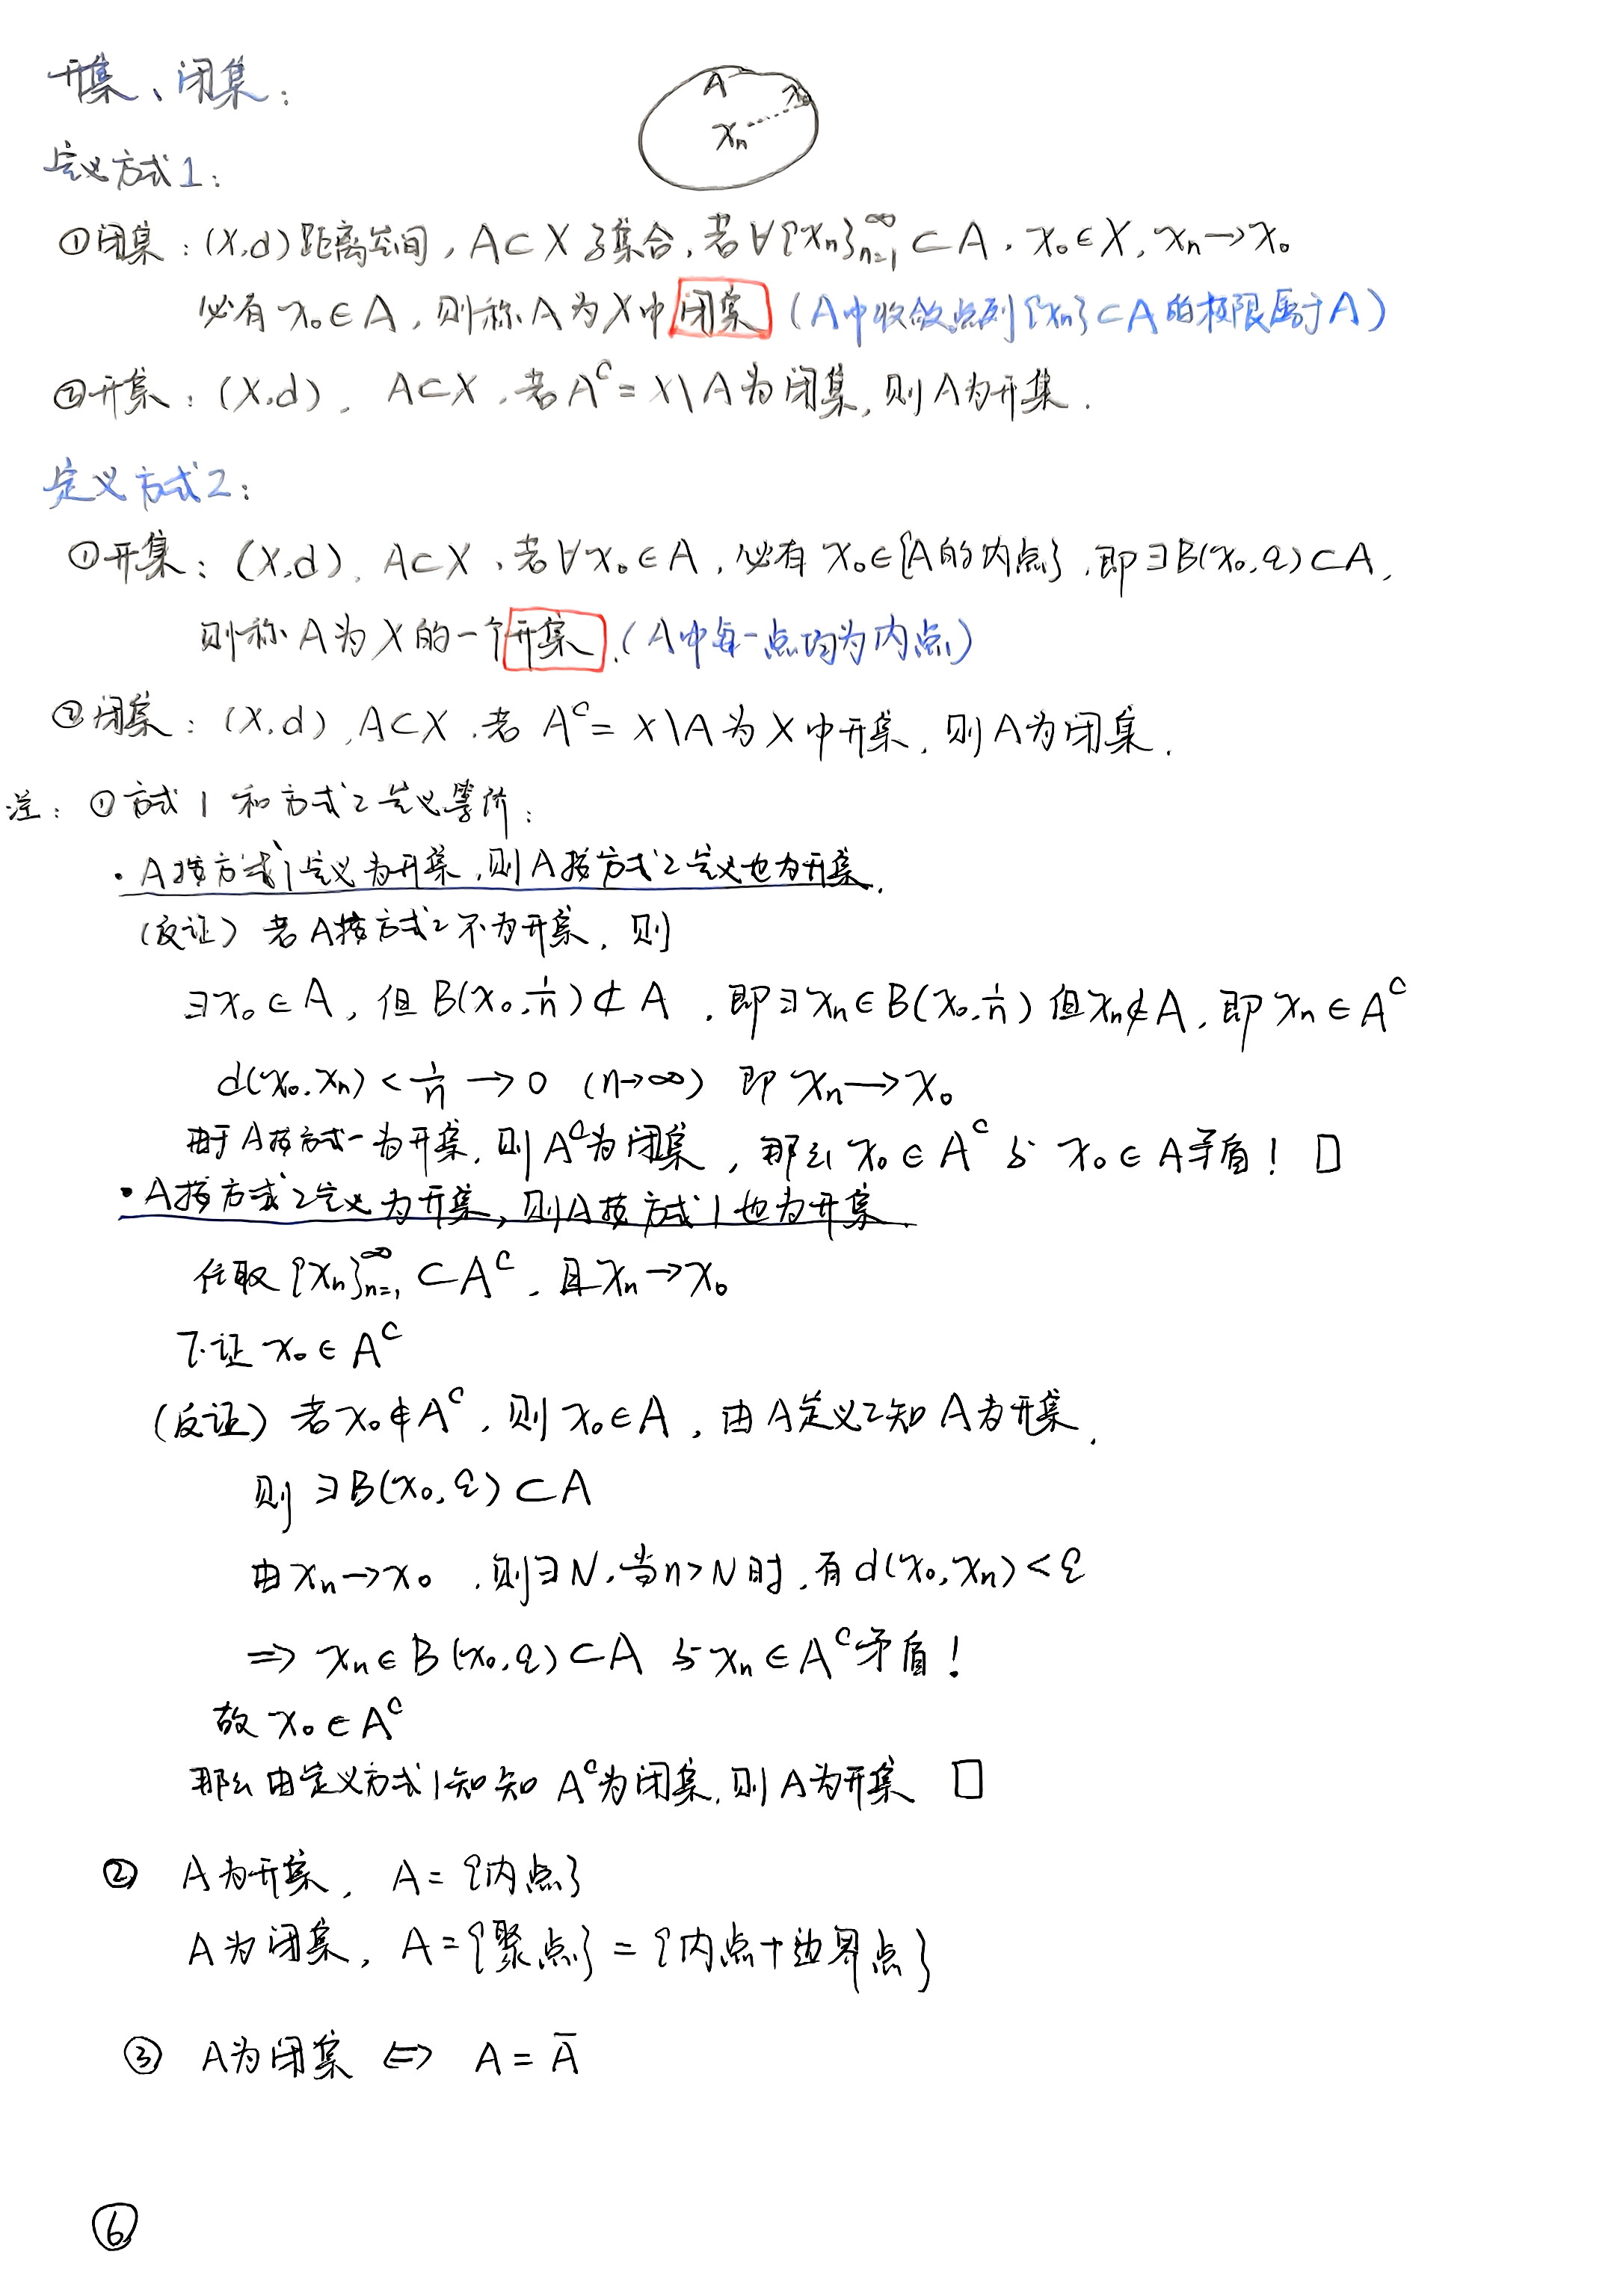 开集、闭集：
A x₀
xₙ
定义方式1：
①闭集：(X,d)距离空间，A⊂X子集合，若∀{xₙ}ₙ₌₁^∞⊂A，x₀∈X，xₙ→x₀
必有x₀∈A，则称A为X中闭集（A中收敛点列{xₙ}⊂A的极限属于A）
②开集：(X,d)，A⊂X，若Aᶜ=X\A为闭集，则A为开集．
定义方式2：
①开集：(X,d)，A⊂X，若∀x₀∈A，必有x₀∈{A的内点}，即∃B(x₀,ε)⊂A，
则称A为X的一个开集．（A中每一点均为内点）
②闭集：(X,d)，A⊂X，若Aᶜ=X\A为X中开集，则A为闭集．
注：①方式1和方式2定义等价：
·A按方式1定义为开集，则A按方式2定义也为开集．
（反证）若A按方式2不为开集，则
∃x₀∈A，但B(x₀,1/n)⊄A，即∃xₙ∈B(x₀,1/n)但xₙ∉A，即xₙ∈Aᶜ
d(x₀,xₙ)<1/n→0 (n→∞) 即xₙ→x₀
由于A按方式一为开集，则Aᶜ为闭集，那么x₀∈Aᶜ与x₀∈A矛盾！□
·A按方式2定义为开集，则A按方式1也为开集．
任取{xₙ}ₙ₌₁^∞⊂Aᶜ，且xₙ→x₀
下证x₀∈Aᶜ
（反证）若x₀∉Aᶜ，则x₀∈A，由A定义2知A为开集，
则∃B(x₀,ε)⊂A
由xₙ→x₀，则∃N，当n>N时，有d(x₀,xₙ)<ε
⇒xₙ∈B(x₀,ε)⊂A与xₙ∈Aᶜ矛盾！
故x₀∈Aᶜ
那么由定义方式1知知Aᶜ为闭集，则A为开集 □
② A为开集，A={内点}
A为闭集，A={聚点}={内点+边界点}
③ A为闭集⇔A=A̅
⑥